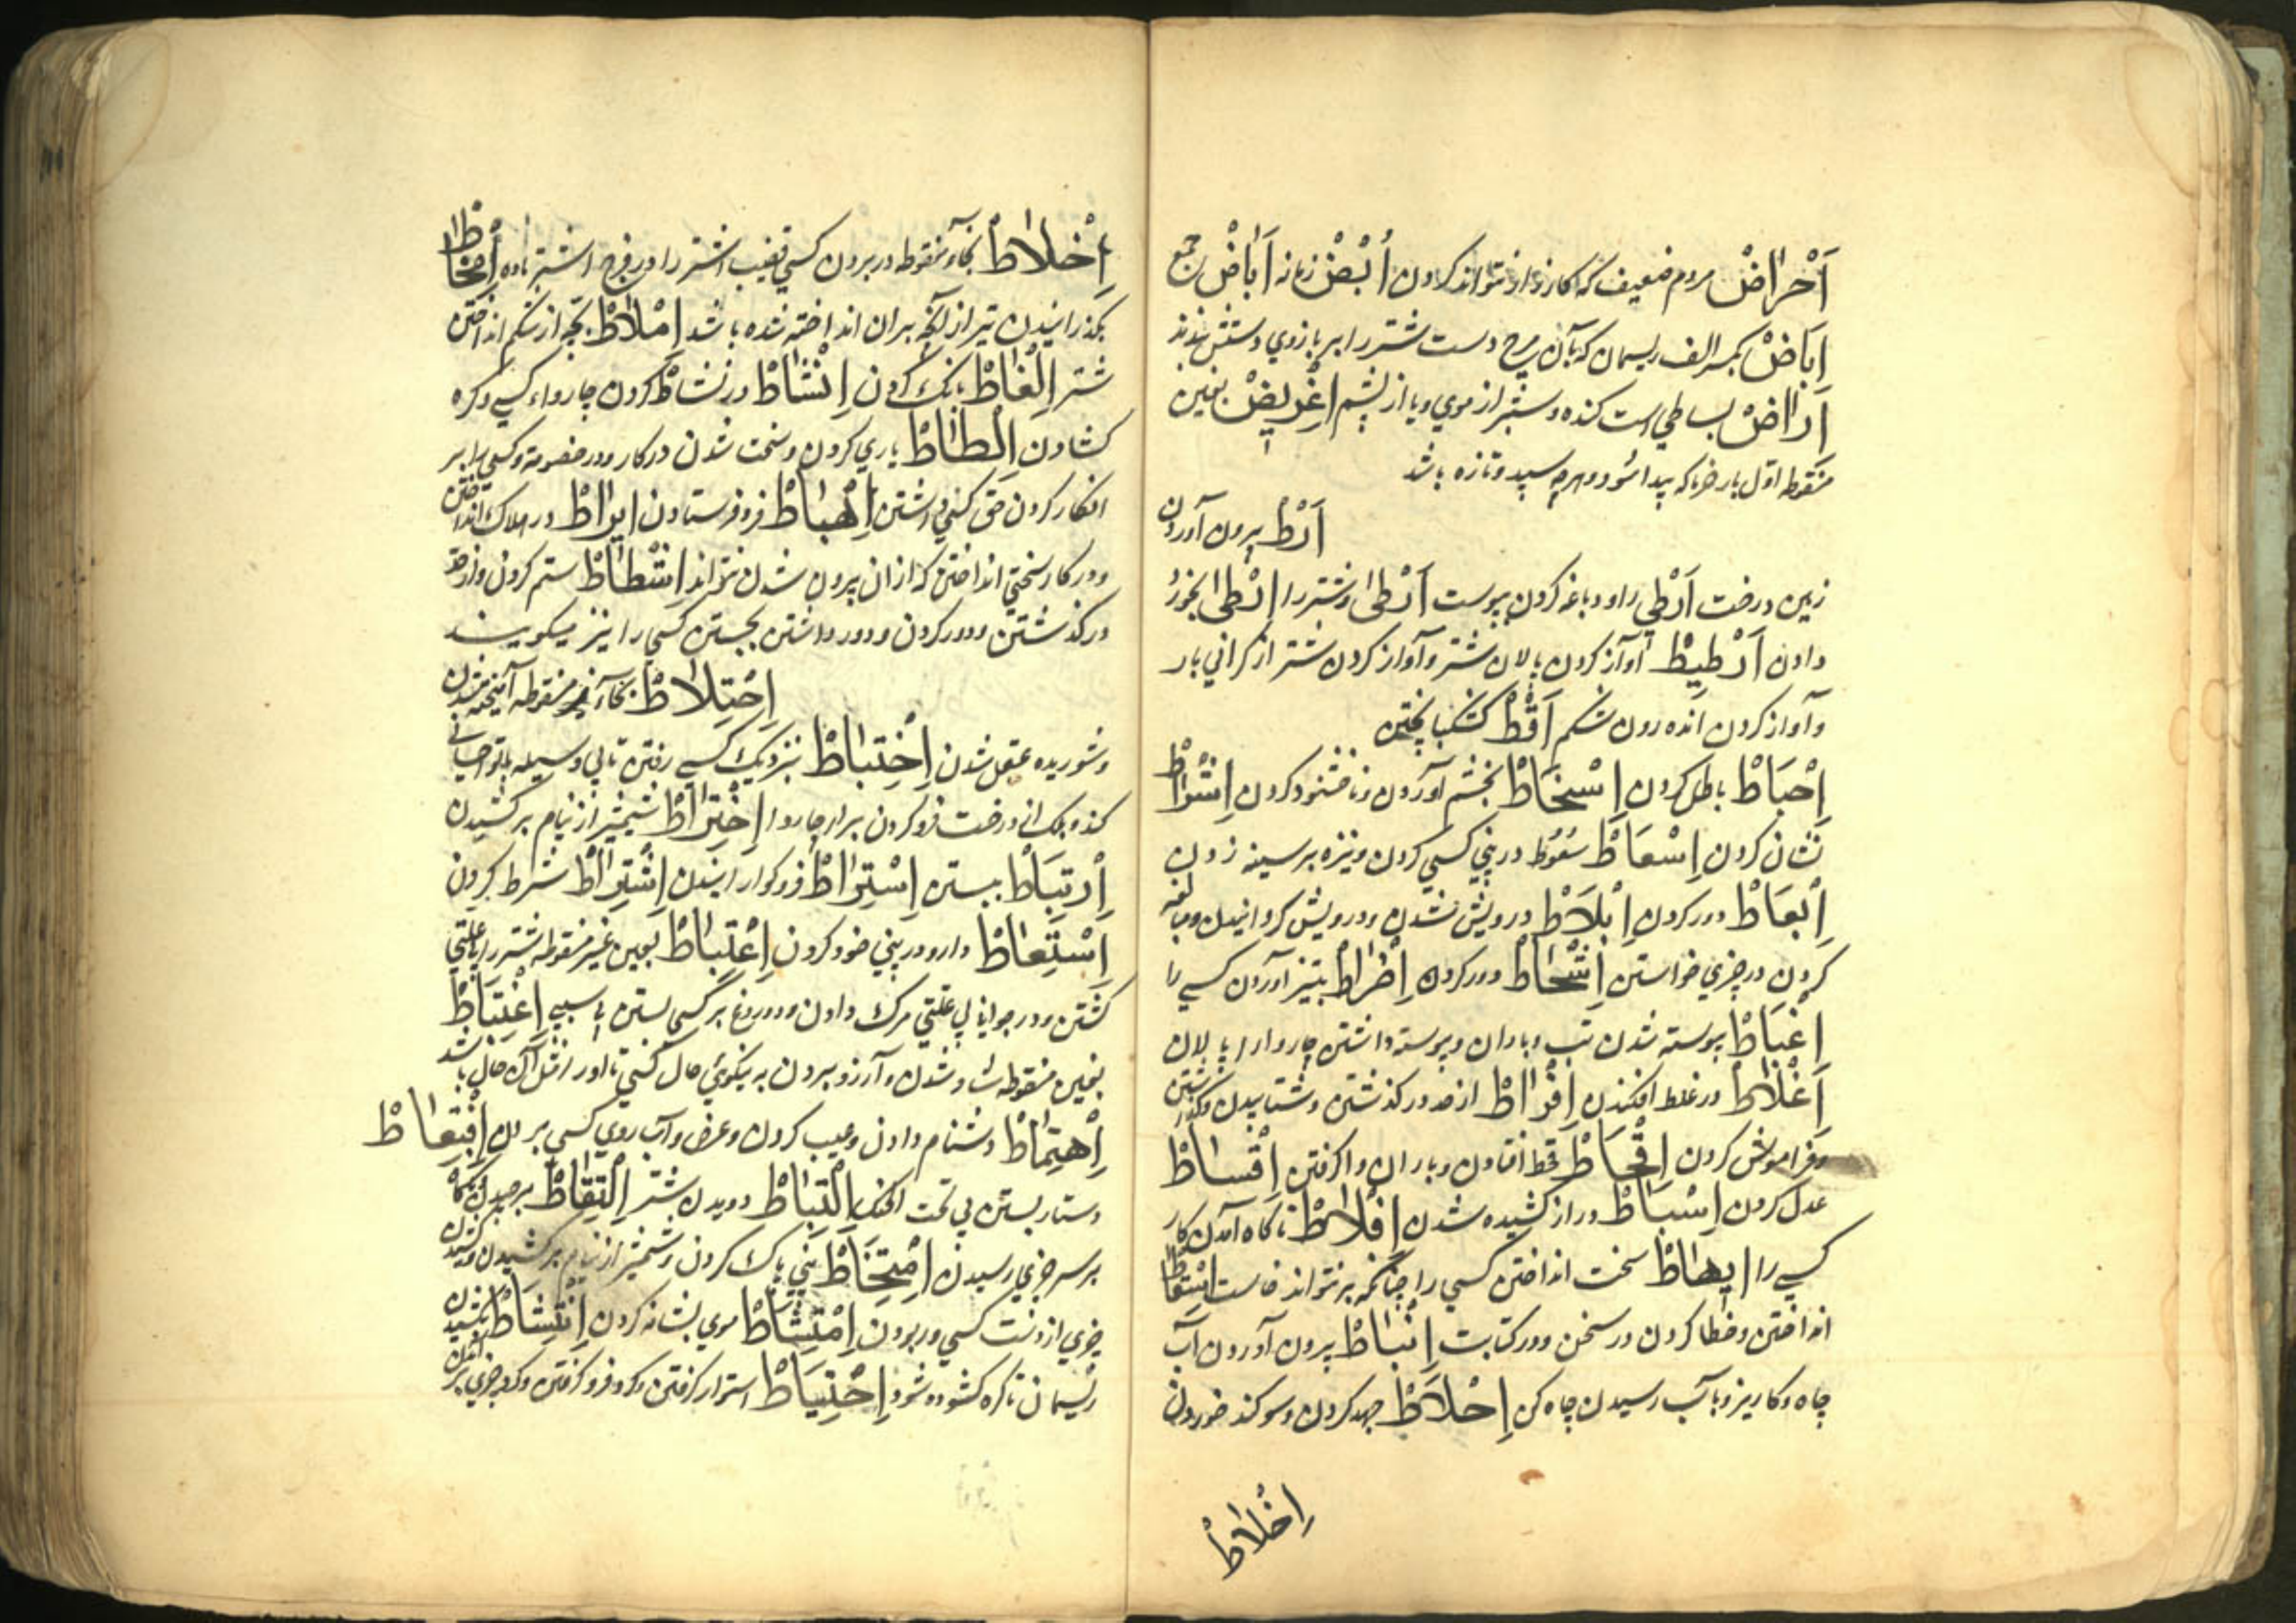 اَحْرَاضْ مردم ضعیف که کارزار نتوانند کردن اُبْضْ زمانه اٰبَاضْ جمع
اِبَاضْ بکسر الف ریسمان که بآن مچ دست شتر را بر بازوی دستش بندند
اِرَاضْ بساطی است کنده و ستبر از موی و یا از پشم اِغْرِیضْ بغین
منقوطه اوّل بار خرما که پیدا شود و هرچه سپید و تازه باشد
اَرْطْ بیرون آوردن
زمین درخت اَرْطی را و دباغه کردن بپوست اَرْطی و شتر را اَرْطی بخورد
دادن اَرْطِیطْ آواز کردن پالان شتر و آواز کردن شتر از گرانی بار
و آواز کردن اندرون شکم اَقْطْ کشکبا پختن
اِحْبَاطْ باطل کردن اِسْخَاطْ بخشم آوردن و ناخشنود کردن اِشْرَاطْ
نشان کردن اِسْعَاطْ سَعُوط در بینی کسی کردن و نیزه بر سینه زدن
اِبْعَاطْ دور کردن اِبْلَاطْ درویش شدن و درویش گردانیدن و مبالغه
کردن در چیزی خواستن اِشْحَاطْ دور کردن اِضْرَاطْ بتیز آوردن کسی را
اِغْبَاطْ پیوسته شدن تب و باران و پیوسته داشتن چاروا را پالان
اَغْلَاطْ در غلط افکندن اِفْرَاطْ از حد در گذشتن و شتابیدن و گذاشتن
و فراموش کردن اِقْحَاطْ قحط افتادن و باران واگرفتن اِقْسَاطْ
عدل کردن اِسْبَاطْ دراز کشیده شدن اِفْلَاطْ ناگاه آمدن کار
کسی را اِیهَاطْ سخت انداختن کسی را چنانکه برنتواند خاست اِسْقَاطْ
انداختن و خطا کردن در سخن و در کتابت اِنْبَاطْ بیرون آوردن آب
چاه و کاریز و بآب رسیدن چاه کن اِحْلَاطْ جهد کردن و سوگند خوردن
اِخْلَاطْ
اِخْلَاطْ بخاء منقوطه در بردن کسی قضیب اشتر را در فرج اشتر ماده اِمْخَاطْ
بگذرانیدن تیر از آنچه بران انداخته شده باشد اِمْلَاطْ بچه از شکم انداختن
شتر اِلْغَاطْ بانگ کردن اِنْشَاطْ در نشاط کردن چاروا کسی و گره
گشادن اِلْطَاطْ یاری کردن و سخت شدن در کار و در خصومة و کسی را بر
انکار کردن حق کسی داشتن اِهْبَاطْ فرو فرستادن اِیرَاطْ در هلاک انداختن
و در کار سختی انداختن که از ان بیرون شدن نتواند اِشْطَاطْ ستم کردن و از حد
در گذشتن و دور کردن و دور داشتن بجستن کسی را نیز میگویند
اِخْتِلَاطْ بخاء منقوطه آمیخته شدن
و شوریده عقل شدن اِخْتِبَاطْ نزدیک کسی رفتن تا بی وسیله با تو احسانی
کند و برک از درخت فرو کردن برای چاروا اِخْتِرَاطْ شمشیر از نیام برکشیدن
اِرْتِبَاطْ ببستن اِسْتِرَاطْ فرو گوارانیدن اِشْتِرَاطْ شرط کردن
اِسْتِعَاطْ دارو در بینی خود کردن اِعْتِبَاطْ بعین غیر منقوطه شتر را بی علتی
کشتن و در جوانی بی علتی مرک دادن و دروغ بر کسی بستن بی سببی اِغْتِبَاطْ
بغین منقوطه شاد شدن و آرزو بردن به نیکوئی حال کسی تا اورا مثل آن حال باشد
اِهْتِمَاطْ دشنام دادن و عیب کردن و عرض و آب روی کسی بردن اِقْتِعَاطْ
دستار بستن بی تحت الحنک اِلْتِبَاطْ دویدن شتر اِلْتِقَاطْ برچیدن
بر سر چیزی رسیدن اِمْتِخَاطْ بینی پاک کردن و شمشیر از نیام برکشیدن و کشیدن
چیزی از دست کسی در ربودن اِمْتِشَاطْ موی بشانه کردن اِنْتِشَاطْ بکشیدن
ریسمان تا گره گشوده شود اِحْتِیَاطْ استوار گرفتن و گرد فرو گرفتن و گرد چیزی